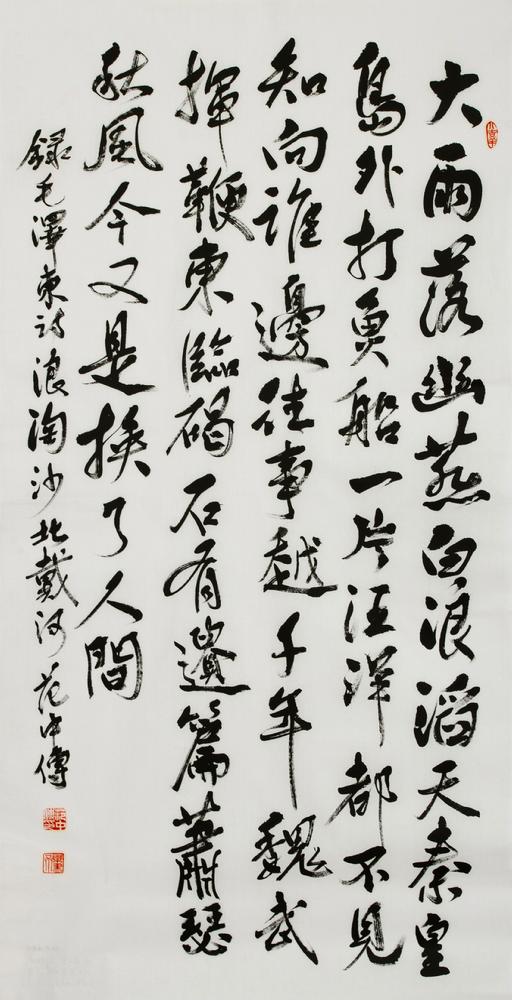 大雨落幽燕白浪滔天秦皇
島外打魚船一片汪洋都不見
知向誰邊往事越千年魏武
揮鞭東臨碣石有遺篇蕭瑟
秋風今又是換了人間
錄毛澤東詩浪淘沙北戴河范中傳